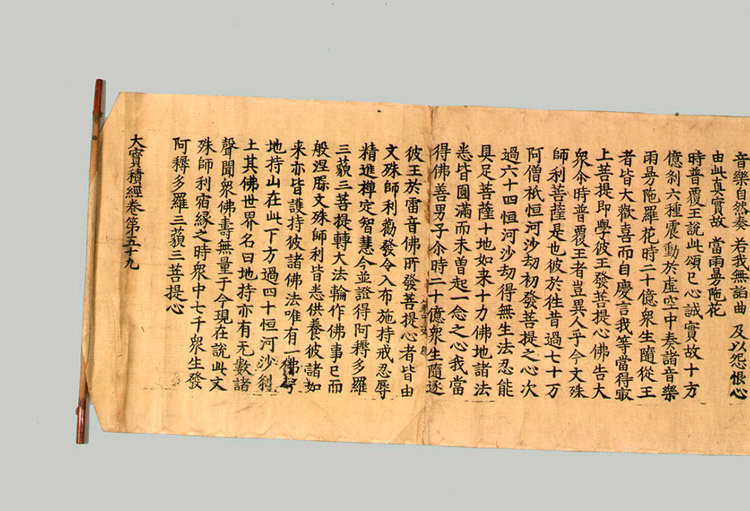 音樂自然奏 若我無諂曲 及以怨恨心
由此真實故 當雨曼陁花
時普覆王說此頌已心誠實故十方
億剎六種震動於虛空中奏諸音樂
雨曼陁羅花時二十億衆生隨從王
者皆大歡喜而自慶言我等當得冣
上菩提即學彼王發菩提心佛告大
衆尒時普覆王者豈異人乎今文殊
師利菩薩是也彼於往昔過七十万
阿僧祇恒河沙劫初發菩提之心次
過六十四恒河沙劫得無生法忍能
具足菩薩十地如来十力佛地諸法
悉皆圓滿而未曾起一念之心我當
得佛善男子尒時二十億衆生隨逐
彼王於雷音佛所發菩提心者皆由
文殊師利勸發令入布施持戒忍辱
精進禪定智慧今並證得阿耨多羅
三藐三菩提轉大法輪作佛事已而
般涅槃文殊師利皆悉供養彼諸如
来亦皆護持彼諸佛法唯有一佛号
地持山在此下方過四十恒河沙剎
土其佛世界名曰地持亦有无數諸
聲聞衆佛壽無量于今現在說此文
殊師利宿緣之時衆中七千衆生發
阿耨多羅三藐三菩提心
大寶積經卷第五十九